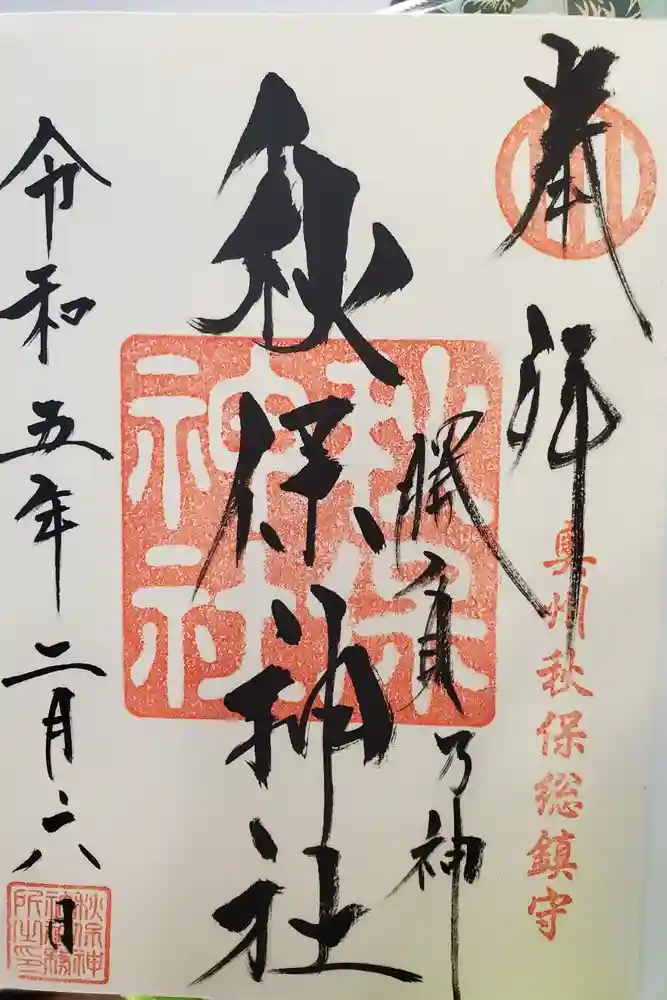 奉拝
奥州秋保総鎮守
勝負乃神
秋保神社
秋保神社
令和五年二月六日
秋保神
社社務
所之印